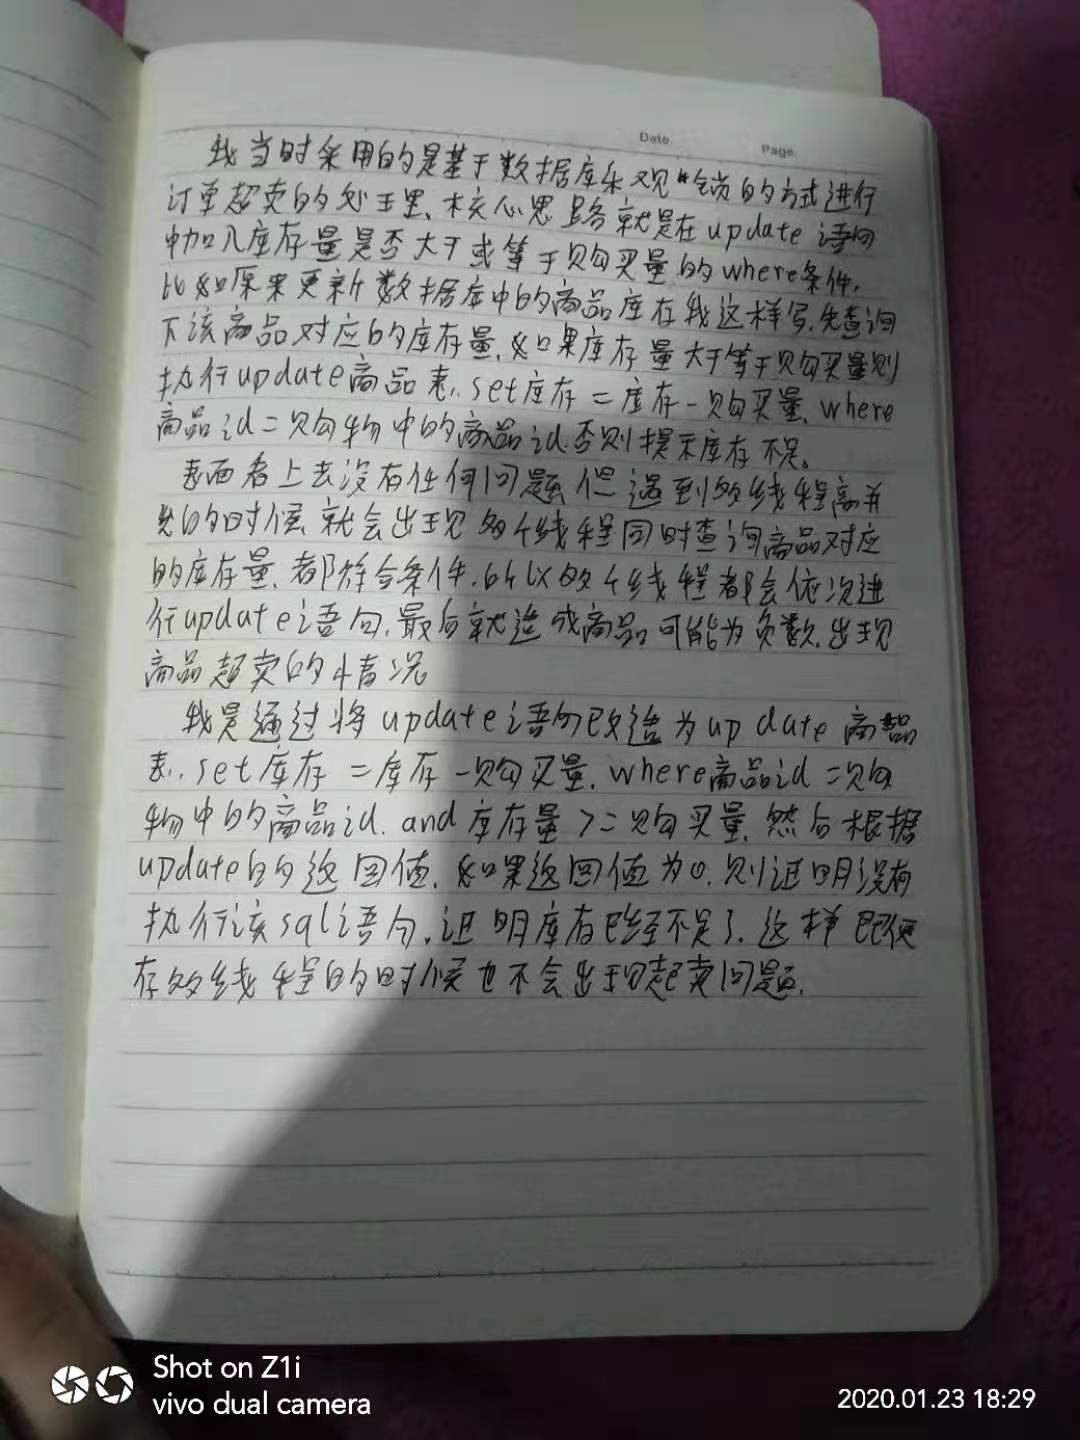 Date.
Page:
我当时采用的是基于数据库乐观"锁的方式进行
订单超卖的处理、核心思路就是在update语句
中加入库存量是否大于或等于购买量的where条件.
比如原来更新数据库中的商品库存我这样写.先查询
下该商品对应的库存量.如果库存量大于等于购买量则
执行update商品表.. set库存=库存-购买量. where
商品id=购物中的商品id.否则提示库存不足。
表面看上去没有任何问题但遇到多线程高并
发的时候就会出现多个线程同时查询商品对应
的库存量.都符合条件.所以多个线程都会依次进
行update语句.最后就造成商品可能为负数.出现
商品超卖的情况
我是通过将update语句改造为update 商品
表.. set库存=库存-购买量. where商品id=购
物中的商品id. and库存量>=购买量.然后根据
update的返回值.如果返回值为0.则证明没有
执行该sql语句.证明库存已经不足了.这样即便
在多线程的时候也不会出现超卖问题.
Shot on Z1i
vivo dual camera
2020.01.23 18:29